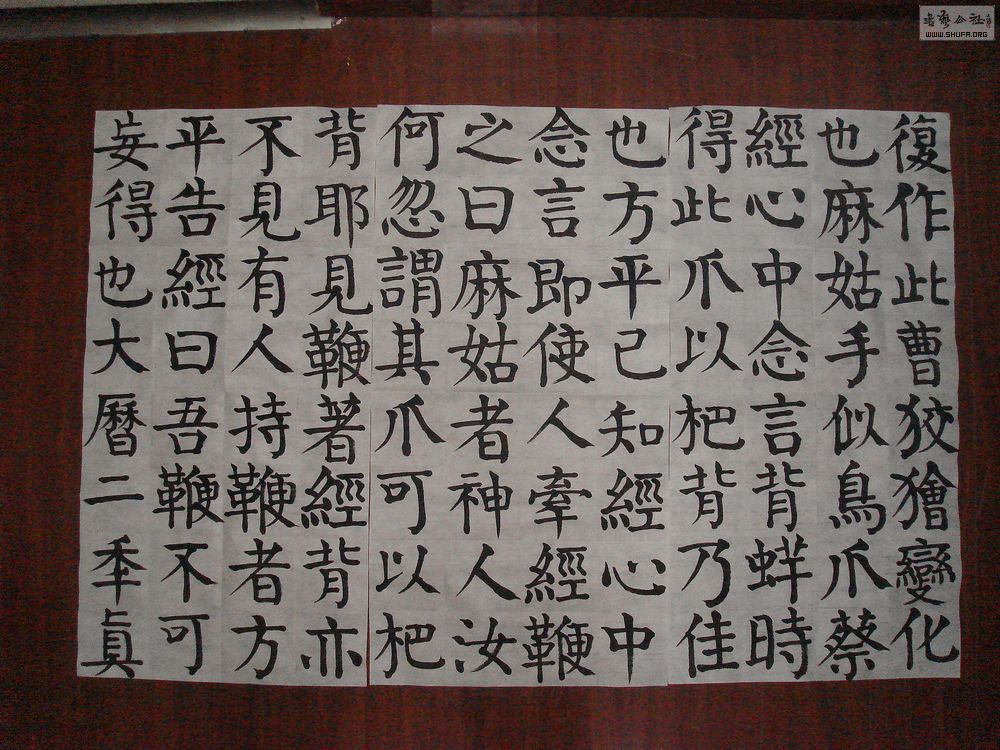 復作此曹狡獪變化
也麻姑手似鳥爪蔡
經心中念言背蛘時
得此爪以杷背乃佳
也方平已知經心中
念言即使人牽經鞭
之曰麻姑者神人汝
何忽謂其爪可以杷
背耶見鞭著經背亦
不見有人持鞭者方
平告經曰吾鞭不可
妄得也大曆二秊眞
書藝公社
WWW.SHUFA.ORG